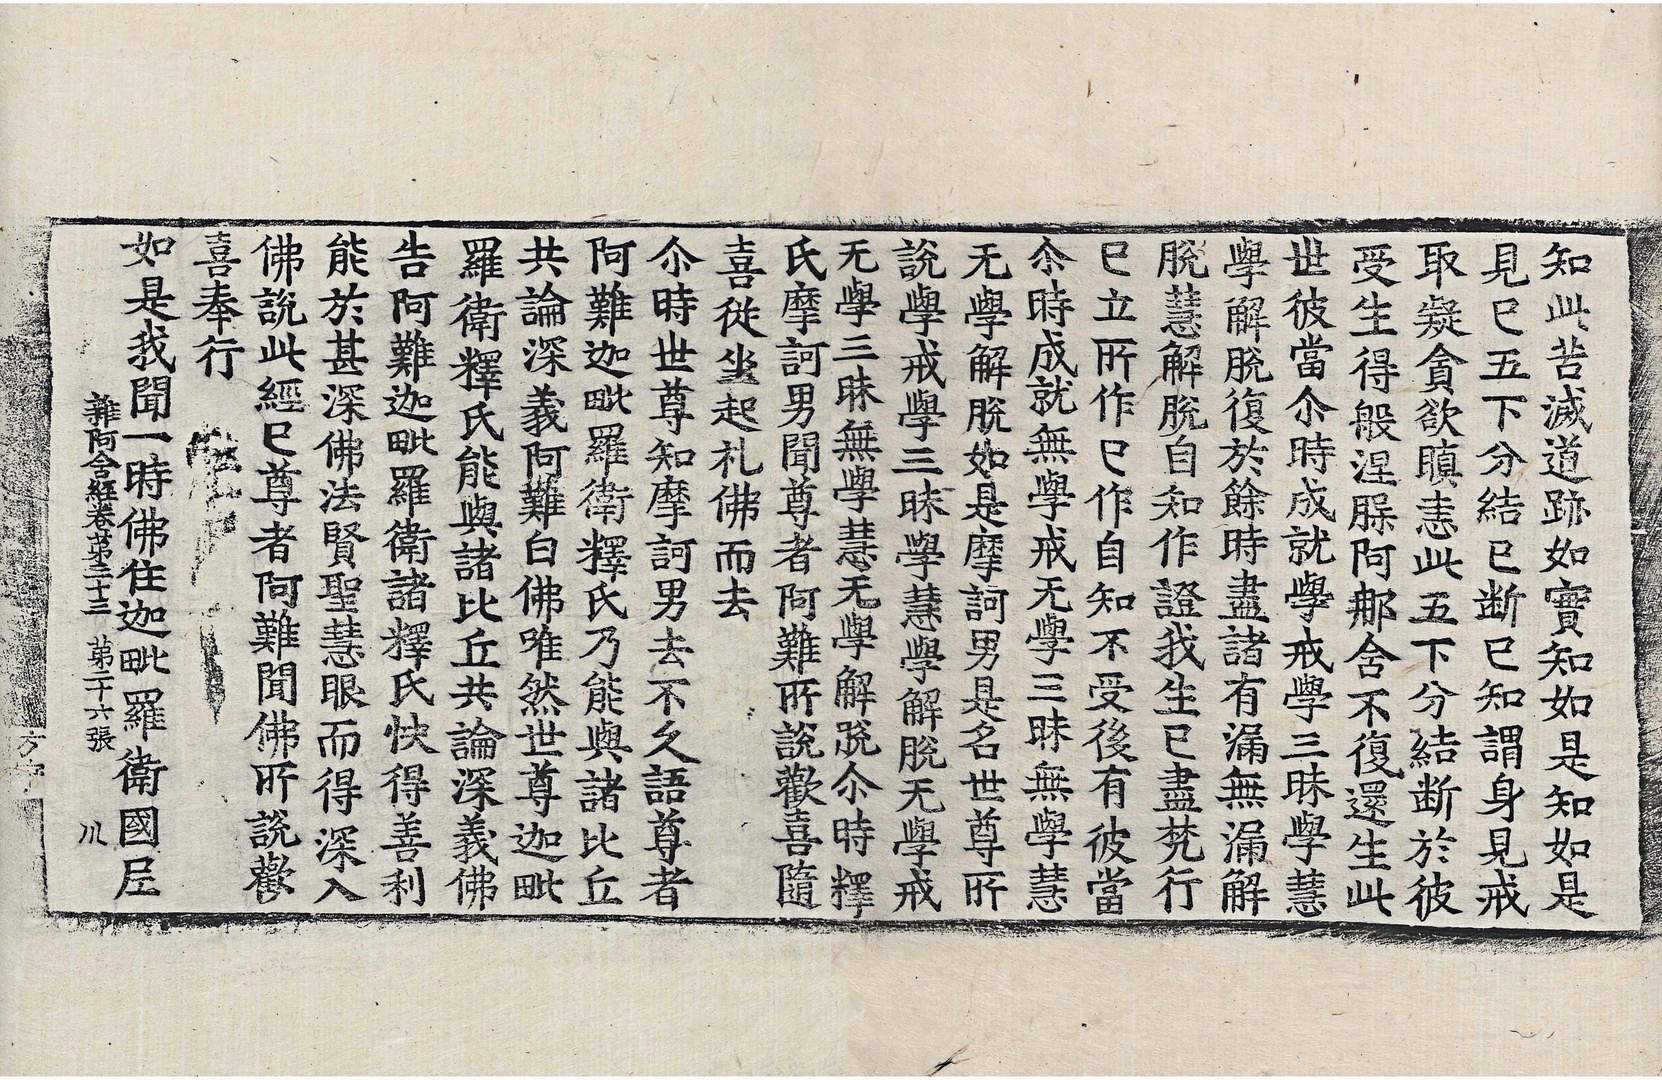 知此苦滅道跡如實知如是知如是
見已五下分結已断已知謂身見戒
取癡貪欲瞋恚此五下分結断於彼
受生得般涅槃阿那含不復還生此
世彼當尒時成就學戒學三昧學慧
學解脫復於餘時盡諸有漏無漏解
脫慧解脫自知作證我生已盡梵行
已立所作已作自知不受後有彼當
尒時成就無學戒无學三昧無學慧
无學解脫如是摩訶男是名世尊所
說學戒學三昧學慧學解脫无學戒
无學三昧無學慧无學解脫尒時釋
氏摩訶男聞尊者阿難所說歡喜隨
喜從坐起礼佛而去
尒時世尊知摩訶男去不久語尊者
阿難迦毗羅衛釋氏乃能與諸比丘
共論深義阿難白佛唯然世尊迦毗
羅衛釋氏能與諸比丘共論深義佛
告阿難迦毗羅衛諸釋氏快得善利
能於甚深佛法賢聖慧眼而得深入
佛說此經已尊者阿難聞佛所說歡
喜奉行
如是我聞一時佛住迦毗羅衛國尼
雜阿含經卷苐三十三 苐二十六張 川